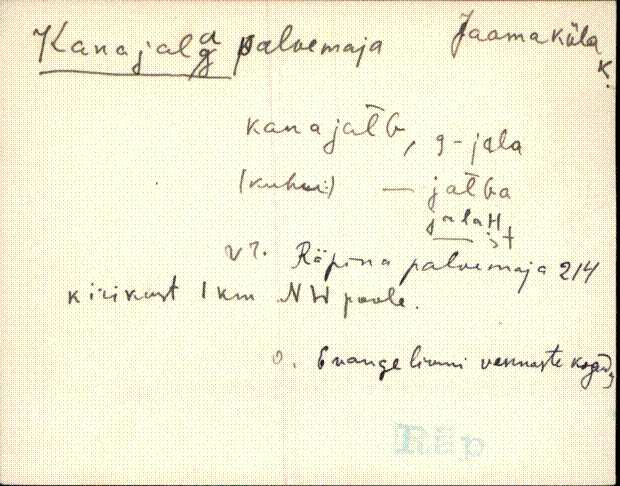 Kanajala palvemaja Jaamaküla
k.
kanajatb, g-jala
(kuhu:) — jatba
jalaH
st
vt. Räpina palvemaja 214
kirikust 1 km NW poole.
o. Evangeeliumi vennaste kogud.
Räp